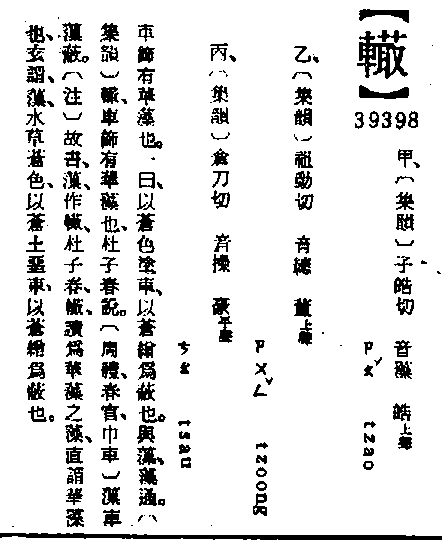 【轍】
39398
甲、〔集韻〕子皓切 音藻 皓上聲
ㄗㄠˇ tzao
乙、〔集韻〕祖動切 音總 董上聲
ㄗㄨㄥˇ tzoong
丙、〔集韻〕倉刀切 音操 豪平聲
ㄘㄠ tsau
車飾有華藻也。一曰、以蒼色塗車、以蒼繒爲蔽也。與藻、藻通。〔
集韻〕轍、車飾有華藻也、杜子春說。〔周禮、春官、巾車〕藻車
藻蔽。〔注〕故書、藻作轍、杜子春、轍讀爲華藻之藻、直謂華藻
也、玄謂、藻、水草蒼色、以蒼土堊車、以蒼繒爲蔽也。